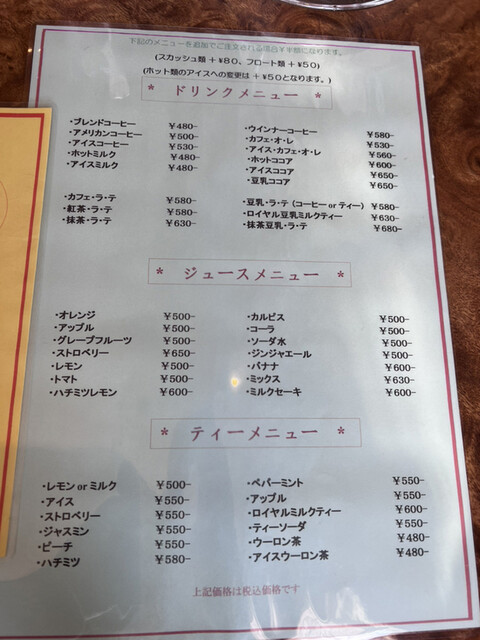 下記のメニューを追加でご注文される場合¥半額になります。
(スカッシュ類 + ¥80、フロート類 + ¥50)
(ホット類のアイスへの変更は + ¥50となります。)
* ドリンクメニュー *
・ブレンドコーヒー ¥480-
・アメリカンコーヒー ¥500-
・アイスコーヒー ¥530-
・ホットミルク ¥480-
・アイスミルク ¥480-
・ウインナーコーヒー ¥580-
・カフェ・オ・レ ¥530-
・アイス・カフェ・オ・レ ¥560-
・ホットココア ¥600-
・アイスココア ¥650-
・豆乳ココア ¥650-
・カフェ・ラ・テ ¥580-
・紅茶・ラ・テ ¥580-
・抹茶・ラ・テ ¥630-
・豆乳・ラ・テ (コーヒー or ティー) ¥580-
・ロイヤル豆乳ミルクティー ¥630-
・抹茶豆乳・ラ・テ ¥680-
* ジュースメニュー *
・オレンジ ¥500-
・アップル ¥500-
・グレープフルーツ ¥500-
・ストロベリー ¥650-
・レモン ¥500-
・トマト ¥500-
・ハチミツレモン ¥600-
・カルピス ¥500-
・コーラ ¥500-
・ソーダ水 ¥500-
・ジンジャエール ¥500-
・バナナ ¥600-
・ミックス ¥630-
・ミルクセーキ ¥600-
* ティーメニュー *
・レモン or ミルク ¥500-
・アイス ¥550-
・ストロベリー ¥550-
・ジャスミン ¥550-
・ピーチ ¥550-
・ハチミツ ¥580-
・ペパーミント ¥550-
・アップル ¥550-
・ロイヤルミルクティー ¥600-
・ティーソーダ ¥550-
・ウーロン茶 ¥480-
・アイスウーロン茶 ¥480-
上記価格は税込価格です